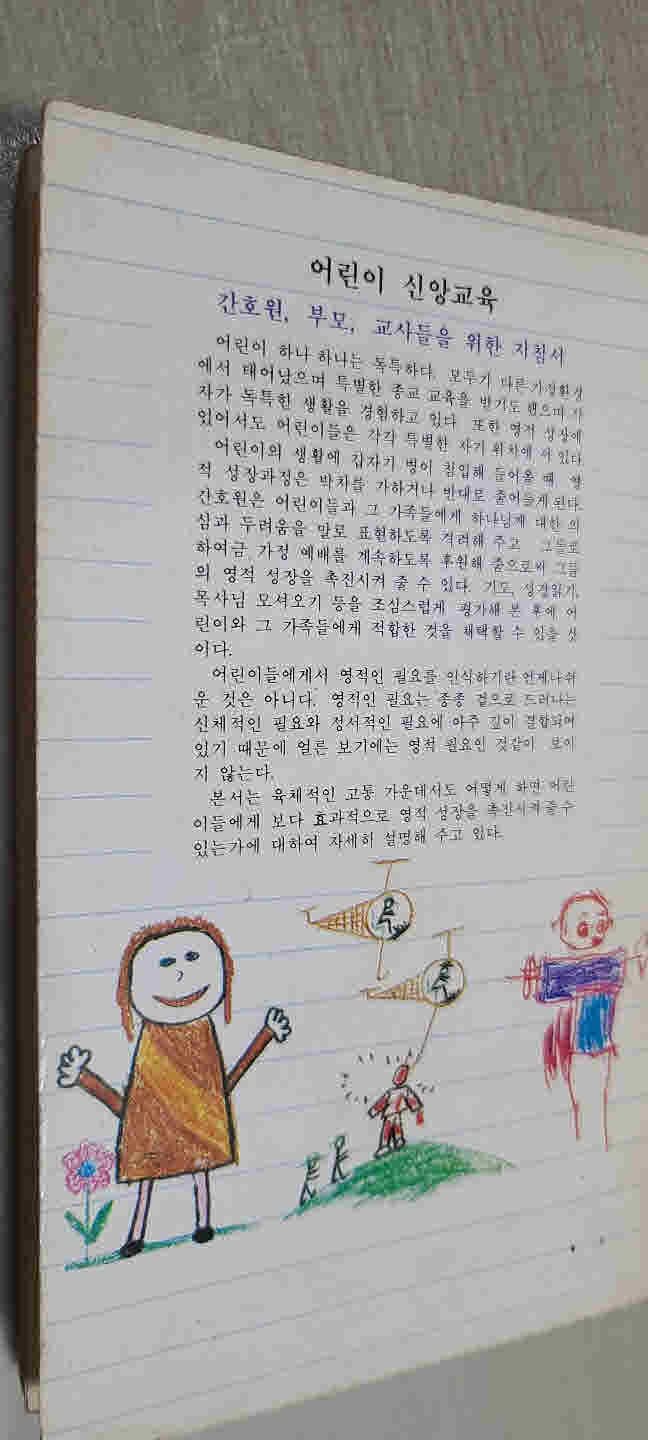 어린이 신앙교육
간호원, 부모, 교사들을 위한 지침서
어린이 하나 하나는 독특하다. 모두가 다른 가정환경
에서 태어났으며 특별한 종교 교육을 받기도 했으며 각
자가 독특한 생활을 경험하고 있다. 또한 영적 성장에
있어서도 어린이들은 각각 특별한 자기 위치에 서 있다.
어린이의 생활에 갑자기 병이 침입해 들어올 때 영
적 성장과정은 박차를 가하거나 반대로 줄어들게 된다.
간호원은 어린이들과 그 가족들에게 하나님께 대한 의
심과 두려움을 말로 표현하도록 격려해 주고 그들로
하여금 가정 예배를 계속하도록 후원해 줌으로써 그들
의 영적 성장을 촉진시켜 줄 수 있다. 기도, 성경읽기,
목사님 모셔오기 등을 조심스럽게 평가해 본 후에 어
린이와 그 가족들에게 적합한 것을 채택할 수 있을 것
이다.
어린이들에게서 영적인 필요를 인식하기란 언제나 쉬
운 것은 아니다. 영적인 필요는 종종 겉으로 드러나는
신체적인 필요와 정서적인 필요에 아주 깊이 결합되어
있기 때문에 얼른 보기에는 영적 필요인 것같이 보이
지 않는다.
본서는 육체적인 고통 가운데서도 어떻게 하면 어린
이들에게 보다 효과적으로 영적 성장을 촉진시켜 줄 수
있는가에 대하여 자세히 설명해 주고 있다.